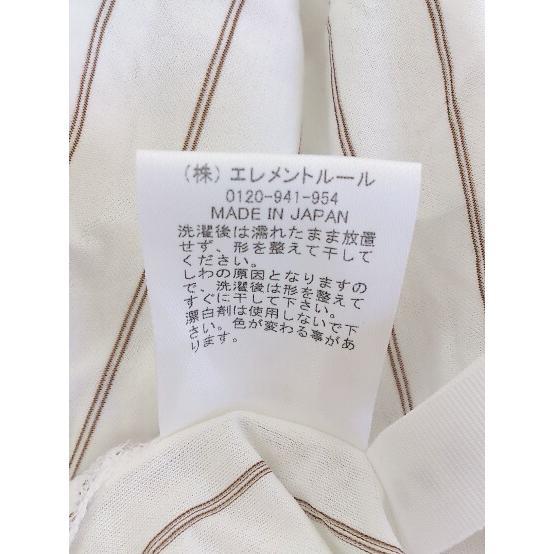 (株)エレメントルール
0120-941-954
MADE IN JAPAN
洗濯後は濡れたまま放置
せず、形を整えて干して
ください。
しわの原因となりますの
で、洗濯後は形を整えて
すぐに干して下さい。
漂白剤は使用しないで下
さい。色が変わる事があ
ります。